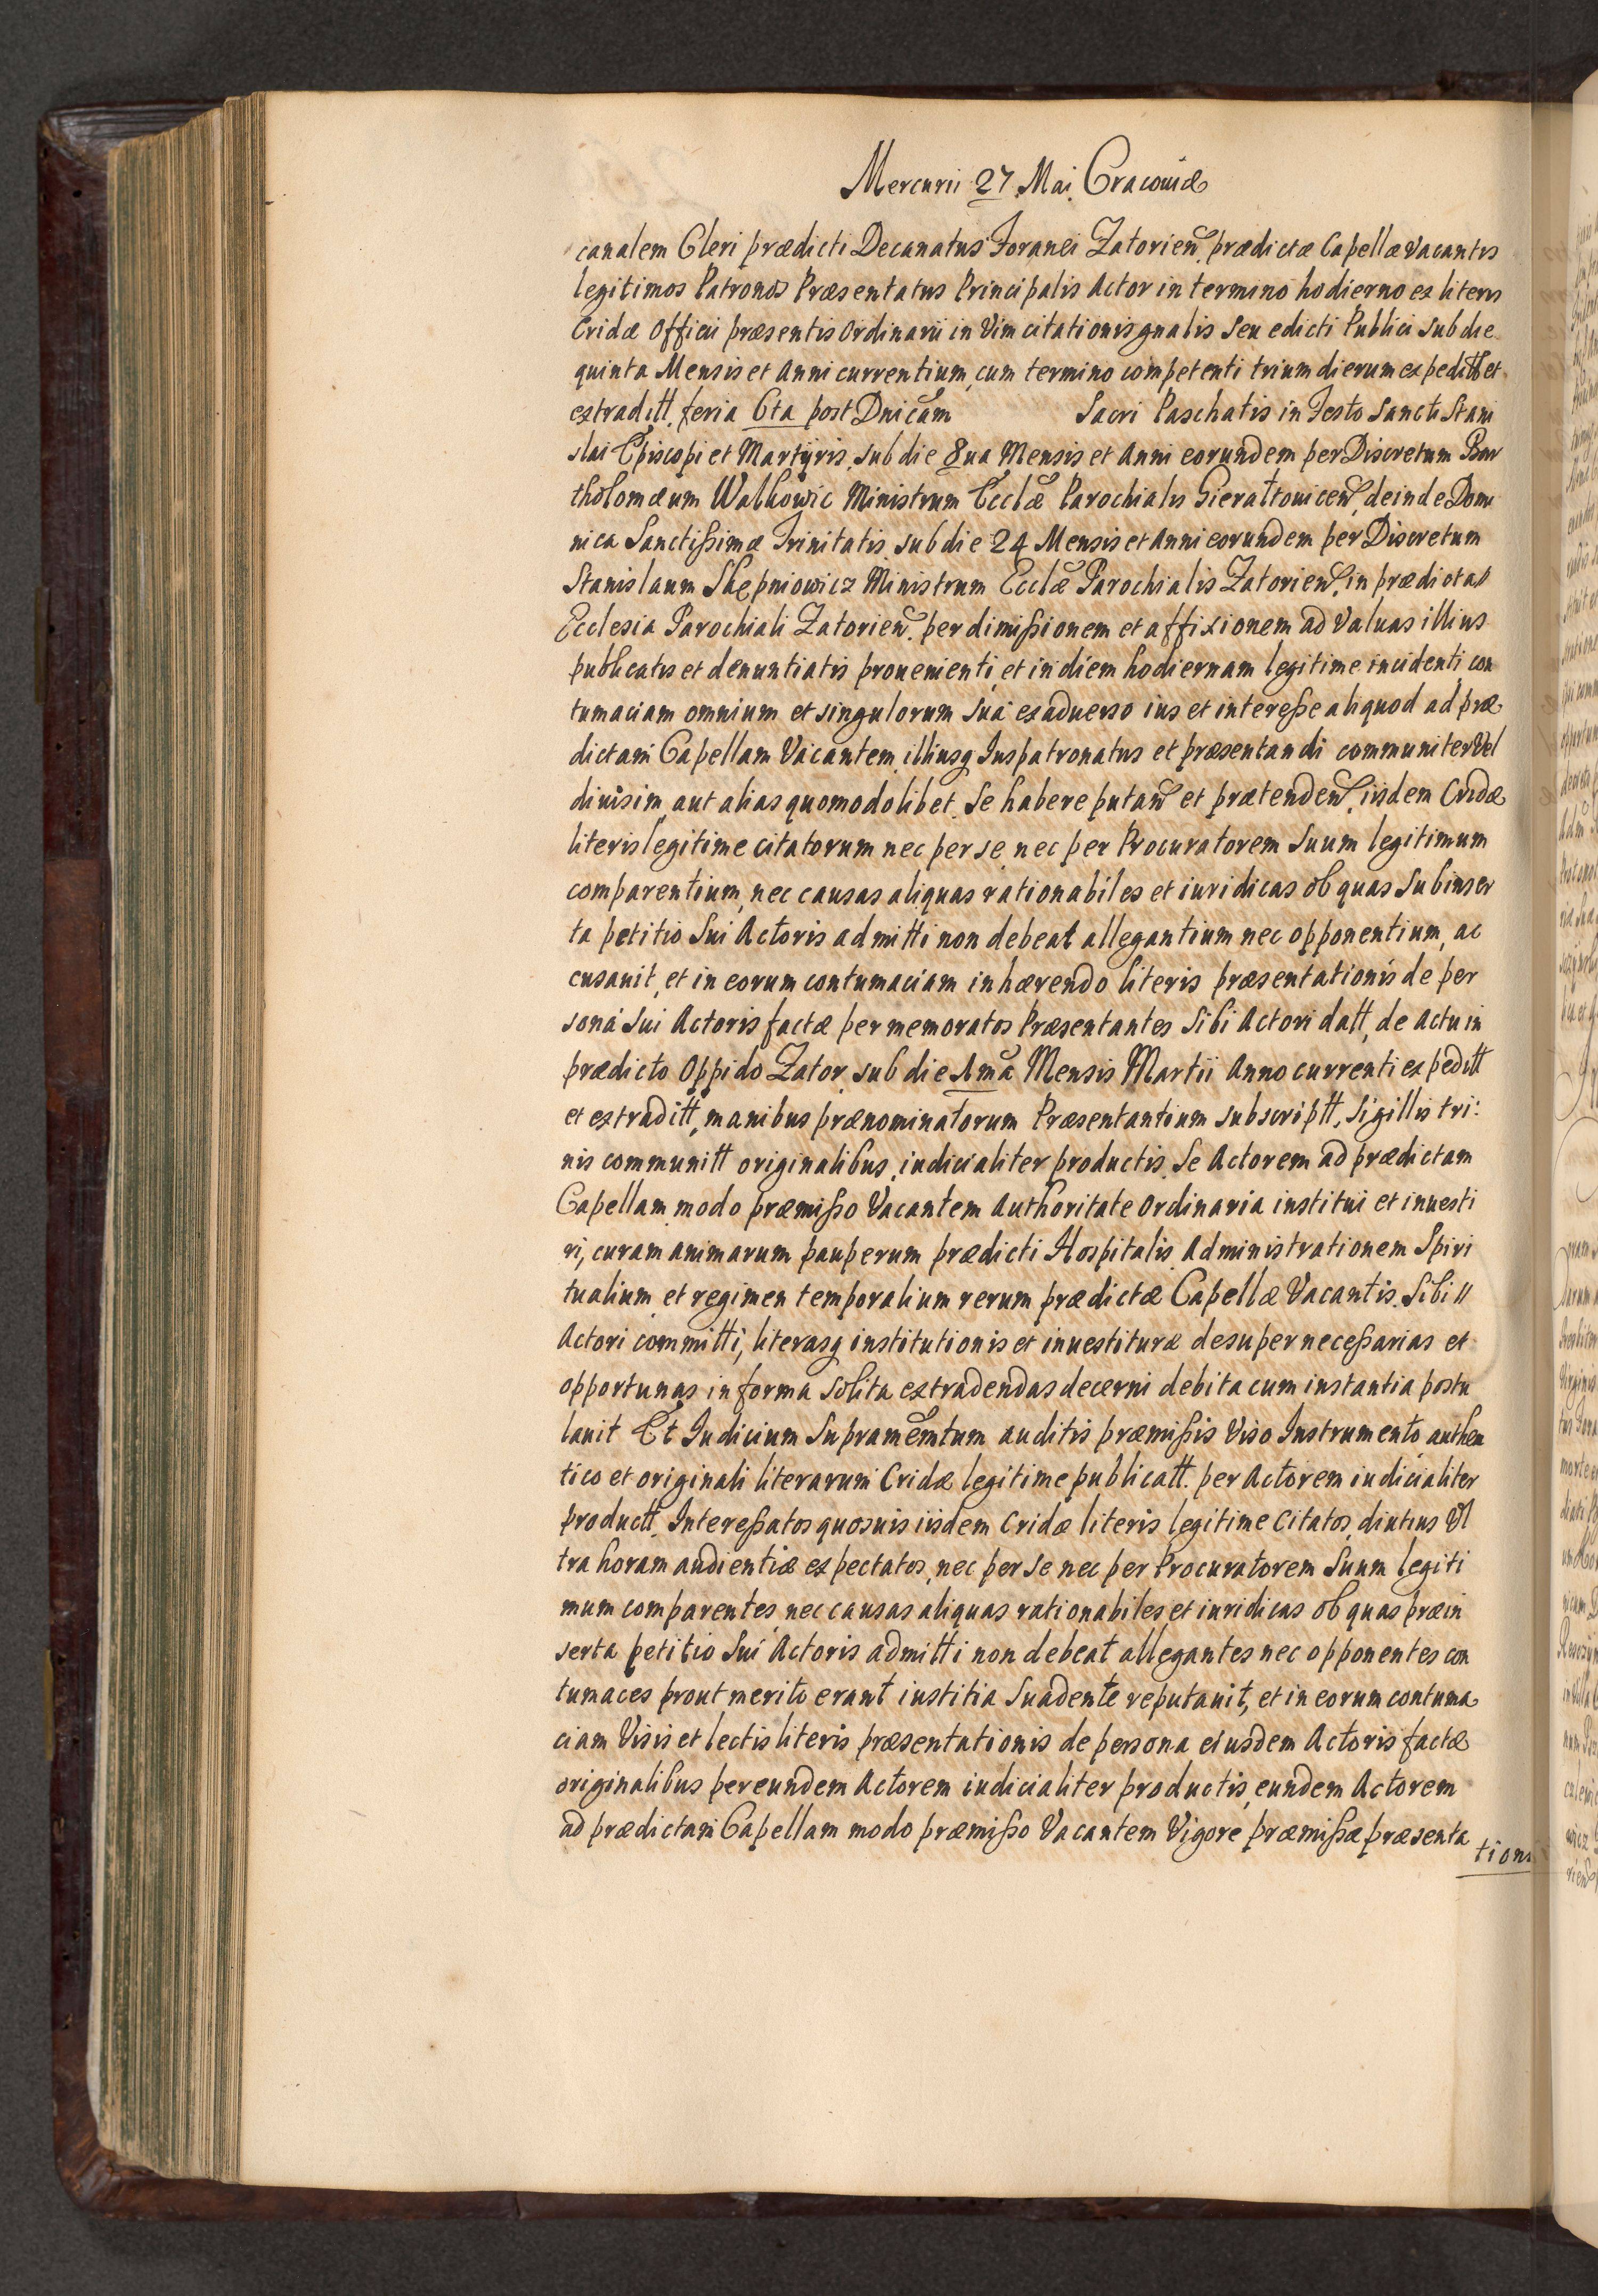 Mercurii 27 Mai. Cracouiæ
canalem Cleri prædicti Decanatus Foranei Zatorien. prædictæ Capellæ vacantis
legitimos Patronos Præsentatus Principalis Actor in termino hodierno ex literis
Cridæ Officii præsentis Ordinarii in Vim citationis gnalis seu edicti Publici sub die
quinta Mensis et Anni currentium, cum termino competenti trium dierum expeditt et
extraditt. feria 6ta post Dnicam Sacri Paschatis in Festo Sancti Stani
slai Episcopi et Martyris, sub die 8ua Mensis et Anni eorundem per Discretum Bar
tholomæum Walkowic Ministrum Ecclæ Parochialis Gierałtouicen, deinde Domi
nica Sanctißimæ Trinitatis sub die 24 Mensis et Anni eorundem per Discretum
Stanislaum Skępniowicz Ministrum Ecclæ Parochialis Zatorien, in prædicta
Ecclesia Parochiali Zatorien. per dimißionem et affixionem ad Valuas illius
publicatis et denuntiatis prouenienti, et in diem hodiernam legitime incidenti, con
tumaciam omnium et singulorum sua ex aduerso ius et intereße aliquod ad præ
dictam Capellam Vacantem illiusq Juspatronatus et præsentandi communiter Vel
diuisim, aut alias quomodolibet. Se habere putan et prætenden, iisdem Cridæ
literis legitime citatorum nec per se, nec per Procuratorem Suum legitimum
comparentium, nec causas aliquas rationabiles et iuridicas ob quas Subinser
ta petitio Sui Actoris admitti non debeat allegantium nec opponentium, ac
cusauit, et in eorum contumaciam inhærendo literis præsentationis de per
sona Sui Actoris factæ per memoratos Præsentantes Sibi Actori datt, de Actu in
prædicto Oppido Zator, sub die 1ma Mensis Martii Anno currenti expeditt
et extraditt, manibus prænominatorum Præsentantium subscriptt, Sigillis tri:
nis communitt originalibus, iudicialiter productis. Se Actorem ad prædictam
Capellam modo præmißo Vacantem Authoritate Ordinaria institui et inuesti
ri, curam animarum pauperum prædicti Hospitalis, Administrationem Spiri
tualium et regimen temporalium rerum prædictæ Capellæ Vacantis. Sibi //
Actori committi, literasq institutionis et inuestituræ desuper neceßarias et
opportunas in forma Solita extradendas decerni debita cum instantia postu
lauit Et Iudicium Supramemtum auditis præmißis Viso Instrumento authen
tico et originali literarum Cridæ legitime publicatt. per Actorem iudicialiter
productt, Intereßatos quosuis iisdem Cridæ literis legitime Citatos, diutius Vl
tra horam audientiæ expectatos, nec per se nec per Procuratorem Suum legiti
mum comparentes, nec causas aliquas rationabiles et iuridicas ob quas præin
serta petitio Sui Actoris admitti non debeat allegantes nec opponentes con
tumaces prout merito erant iustitia Suadente reputauit, et in eorum contuma
ciam Visis et lectis literis præsentationis de persona eiusdem Actoris factæ
originalibus per eundem Actorem iudicialiter productis, eundem Actorem
ad prædictam Capellam modo præmißo Vacantem Vigore præmißæ præsenta
tioni